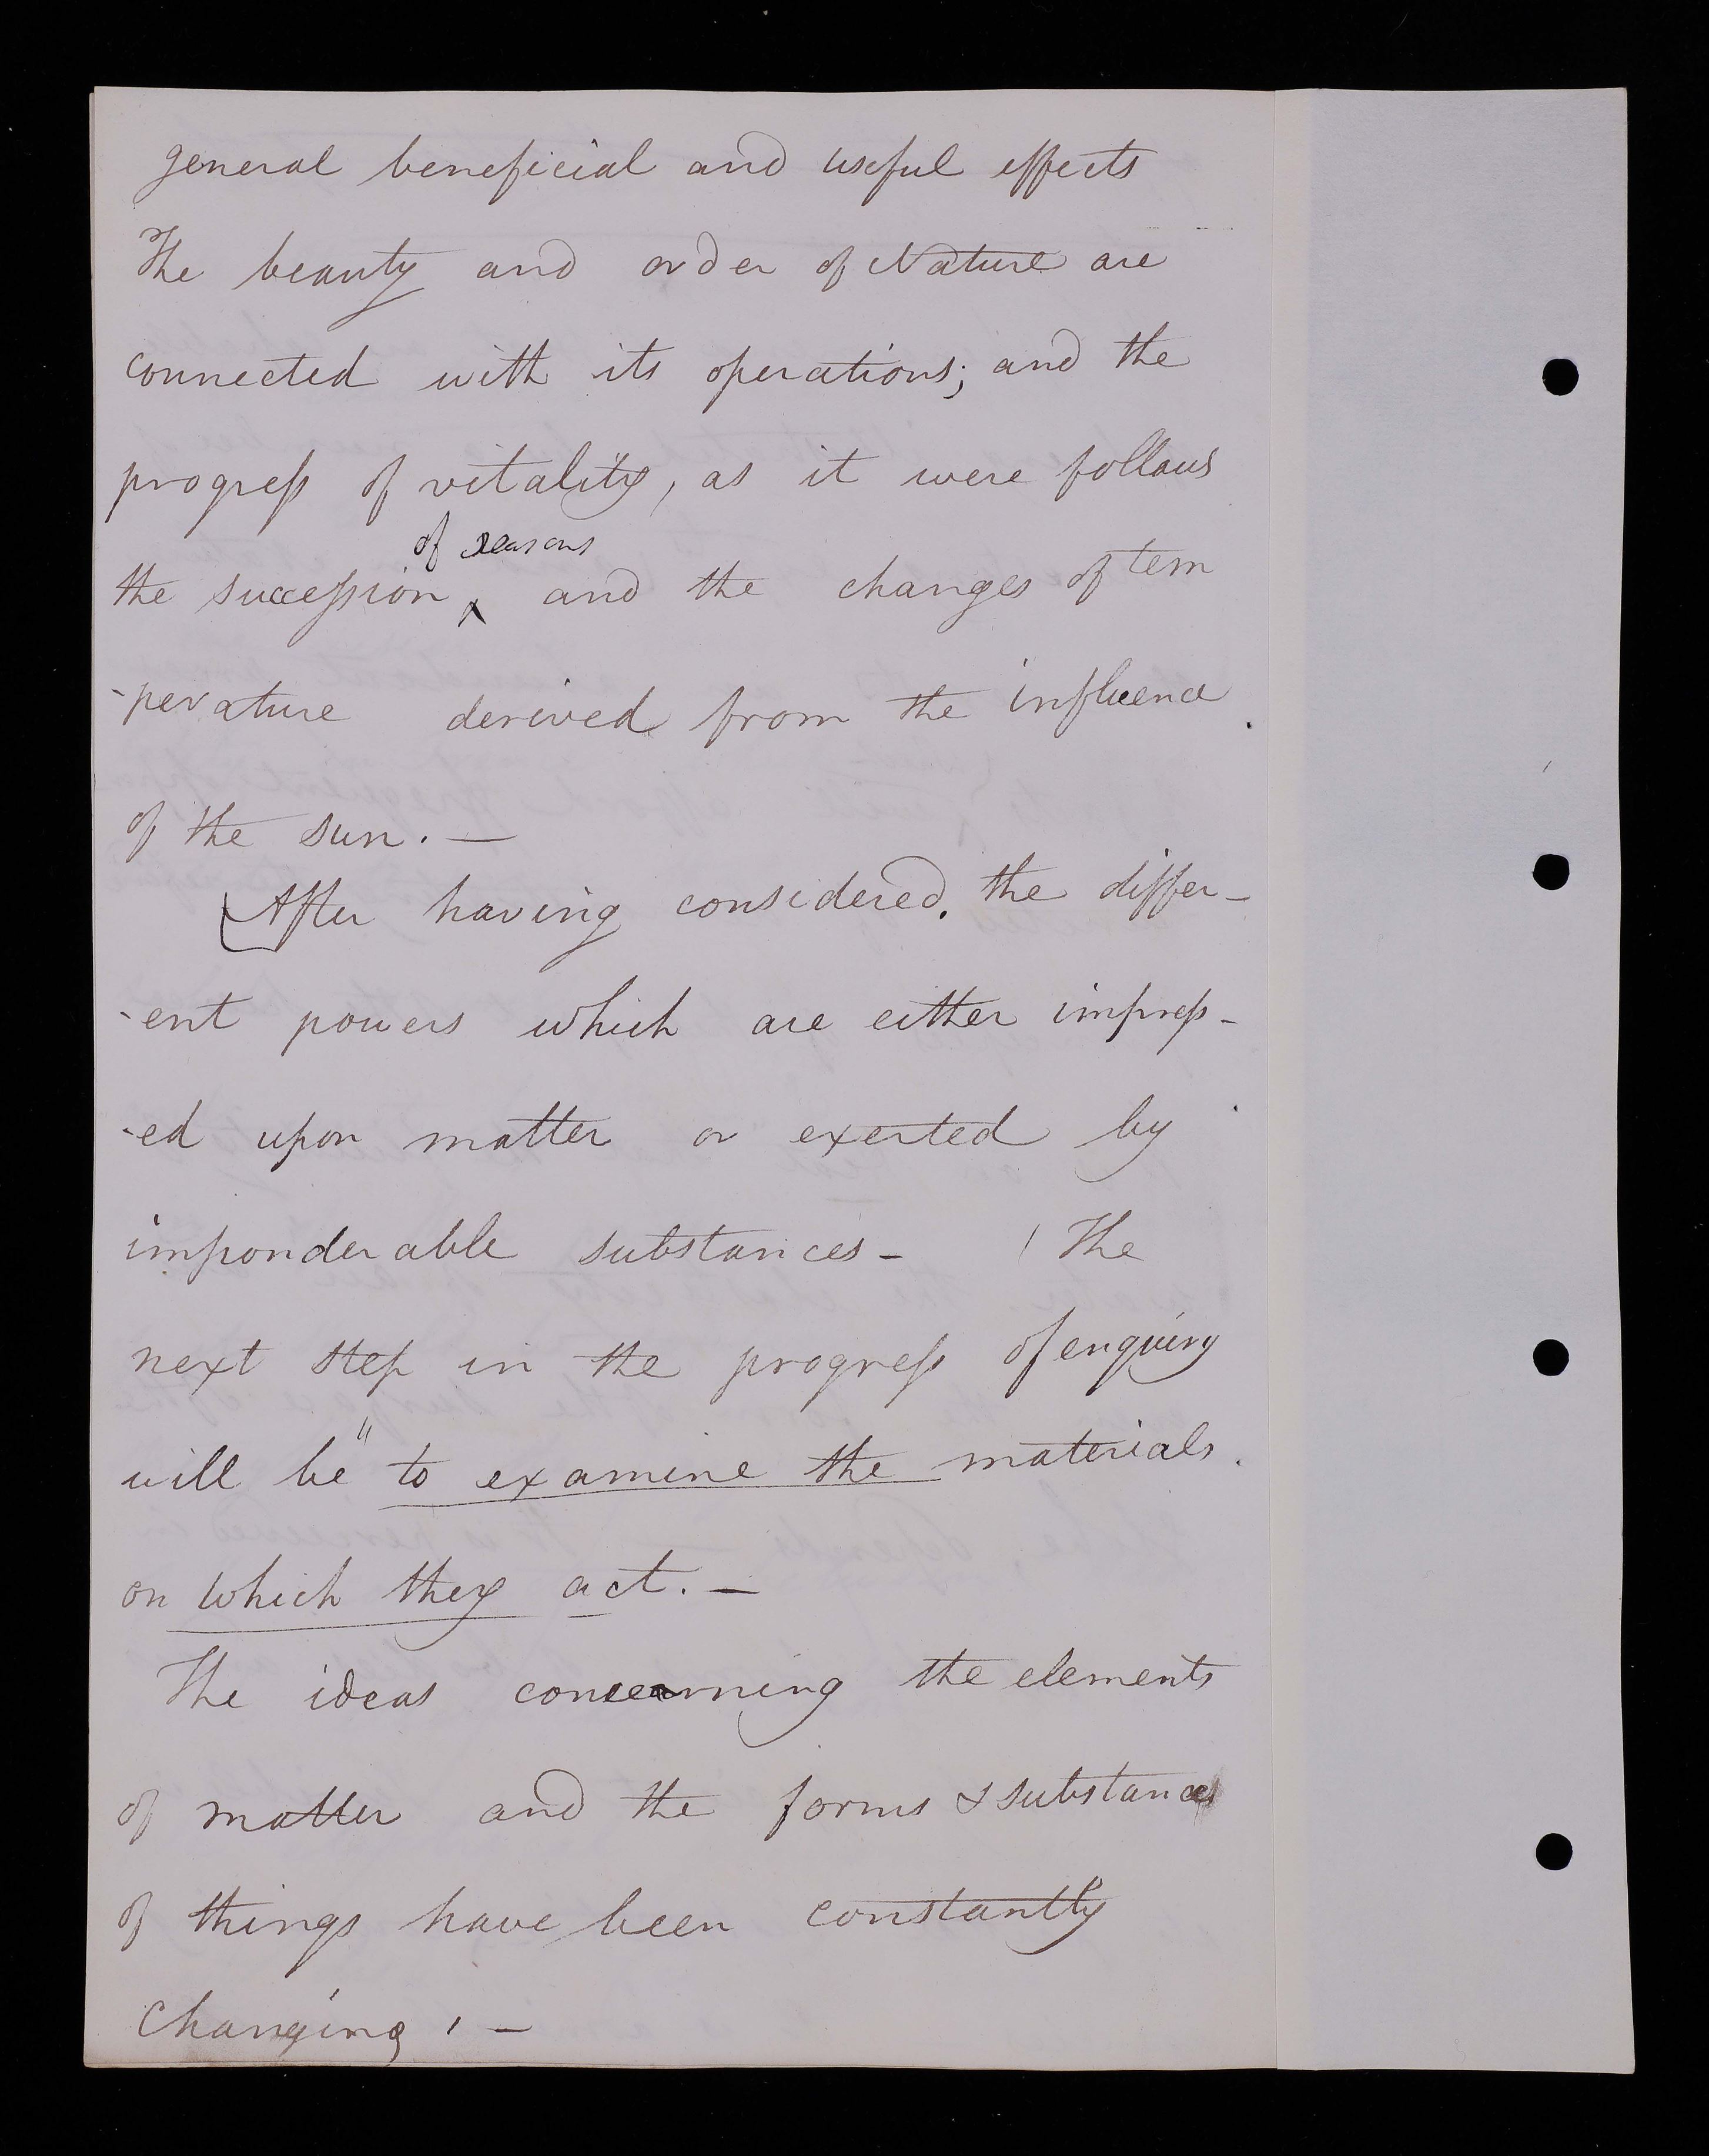 general beneficial and useful effects
The beauty and order of Nature are
connected with its operations; and the
progress of vitality, as it were follows
of seasons
the succession ^ and the changes of tem
-perature derived from the influence
of the sun. —
After having considered. the differ-
-ent powers which are either impress-
-ed upon matter or exerted by
imponderable substances - The
next step in the progress of enquiry
will be " to examine the materials.
on which they act. —
The ideas concerning the elements
of matter and the forms & substances
of things have been constantly
changing, —